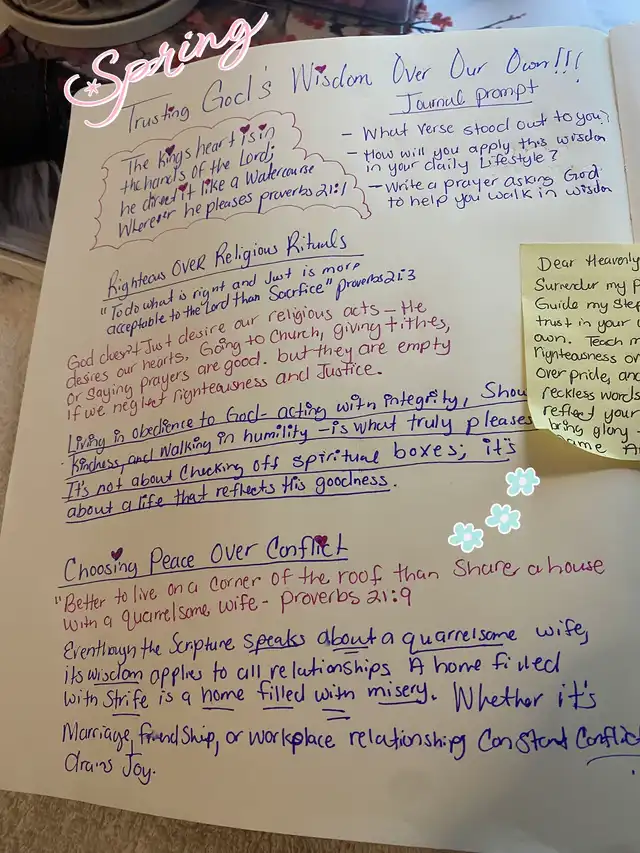 Spring
Trusting God's Wisdom Over Our Own!!!
Journal prompt
- What verse stood out to you?
- How will you apply this wisdom
in your daily Lifestyle?
- Write a prayer asking God
to help you walk in wisdom
The Kings heart is in
the hands of the Lord;
he direct it like a Watercourse
Wherever he pleases proverbs 21:1
Righteous Over Religious Rituals
"To do what is right and Just is more
acceptable to the Lord than Sacrfice" proverbs 21:3
God doesn't Just desire our religious acts - He
desires our hearts. Going to Church, giving tithes,
or Saying prayers are good. but they are empty
if we neglect righteousness and Justice.
Living in obedience to God - acting with integrity, Show
Kindness, and Walking in humility - is what truly pleases
It's not about Checking off spiritual boxes; it's
about a life that reflects His goodness.
Dear Heavenly
Surrender my P
Guide my Step
trust in your
own. Teach m
righteousness ov
over pride, and
reckless words
reflect your
bring glory
name A
Choosing Peace Over Conflict
"Better to live on a corner of the roof than Share a house
with a quarrelsome wife - proverbs 21:9
Eventhough the Scripture speaks about a quarrelsome wife,
its wisdom applies to all relationships A home filled
with Strife is a home filled with misery. Whether it's
Marriage, friendShip, or workplace relationships Constant Conflict
drains Joy.